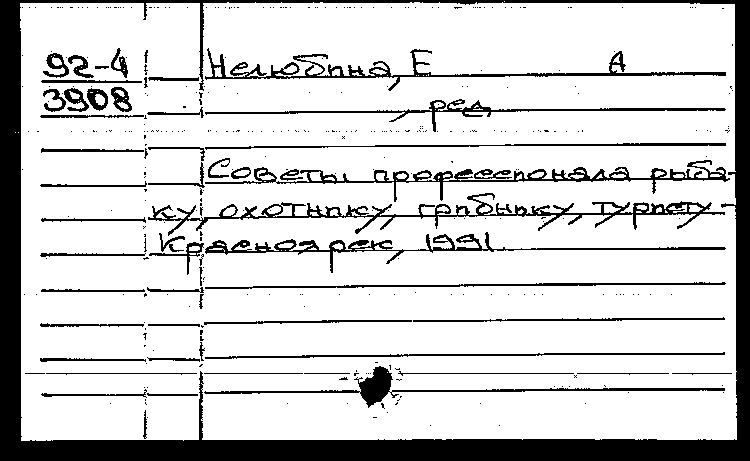 92-4 Нелюбина, Е А
3908 , ред
Советы профессионала рыба-
ку, охотнику, грибнику, туристу -
Красноярск, 1991